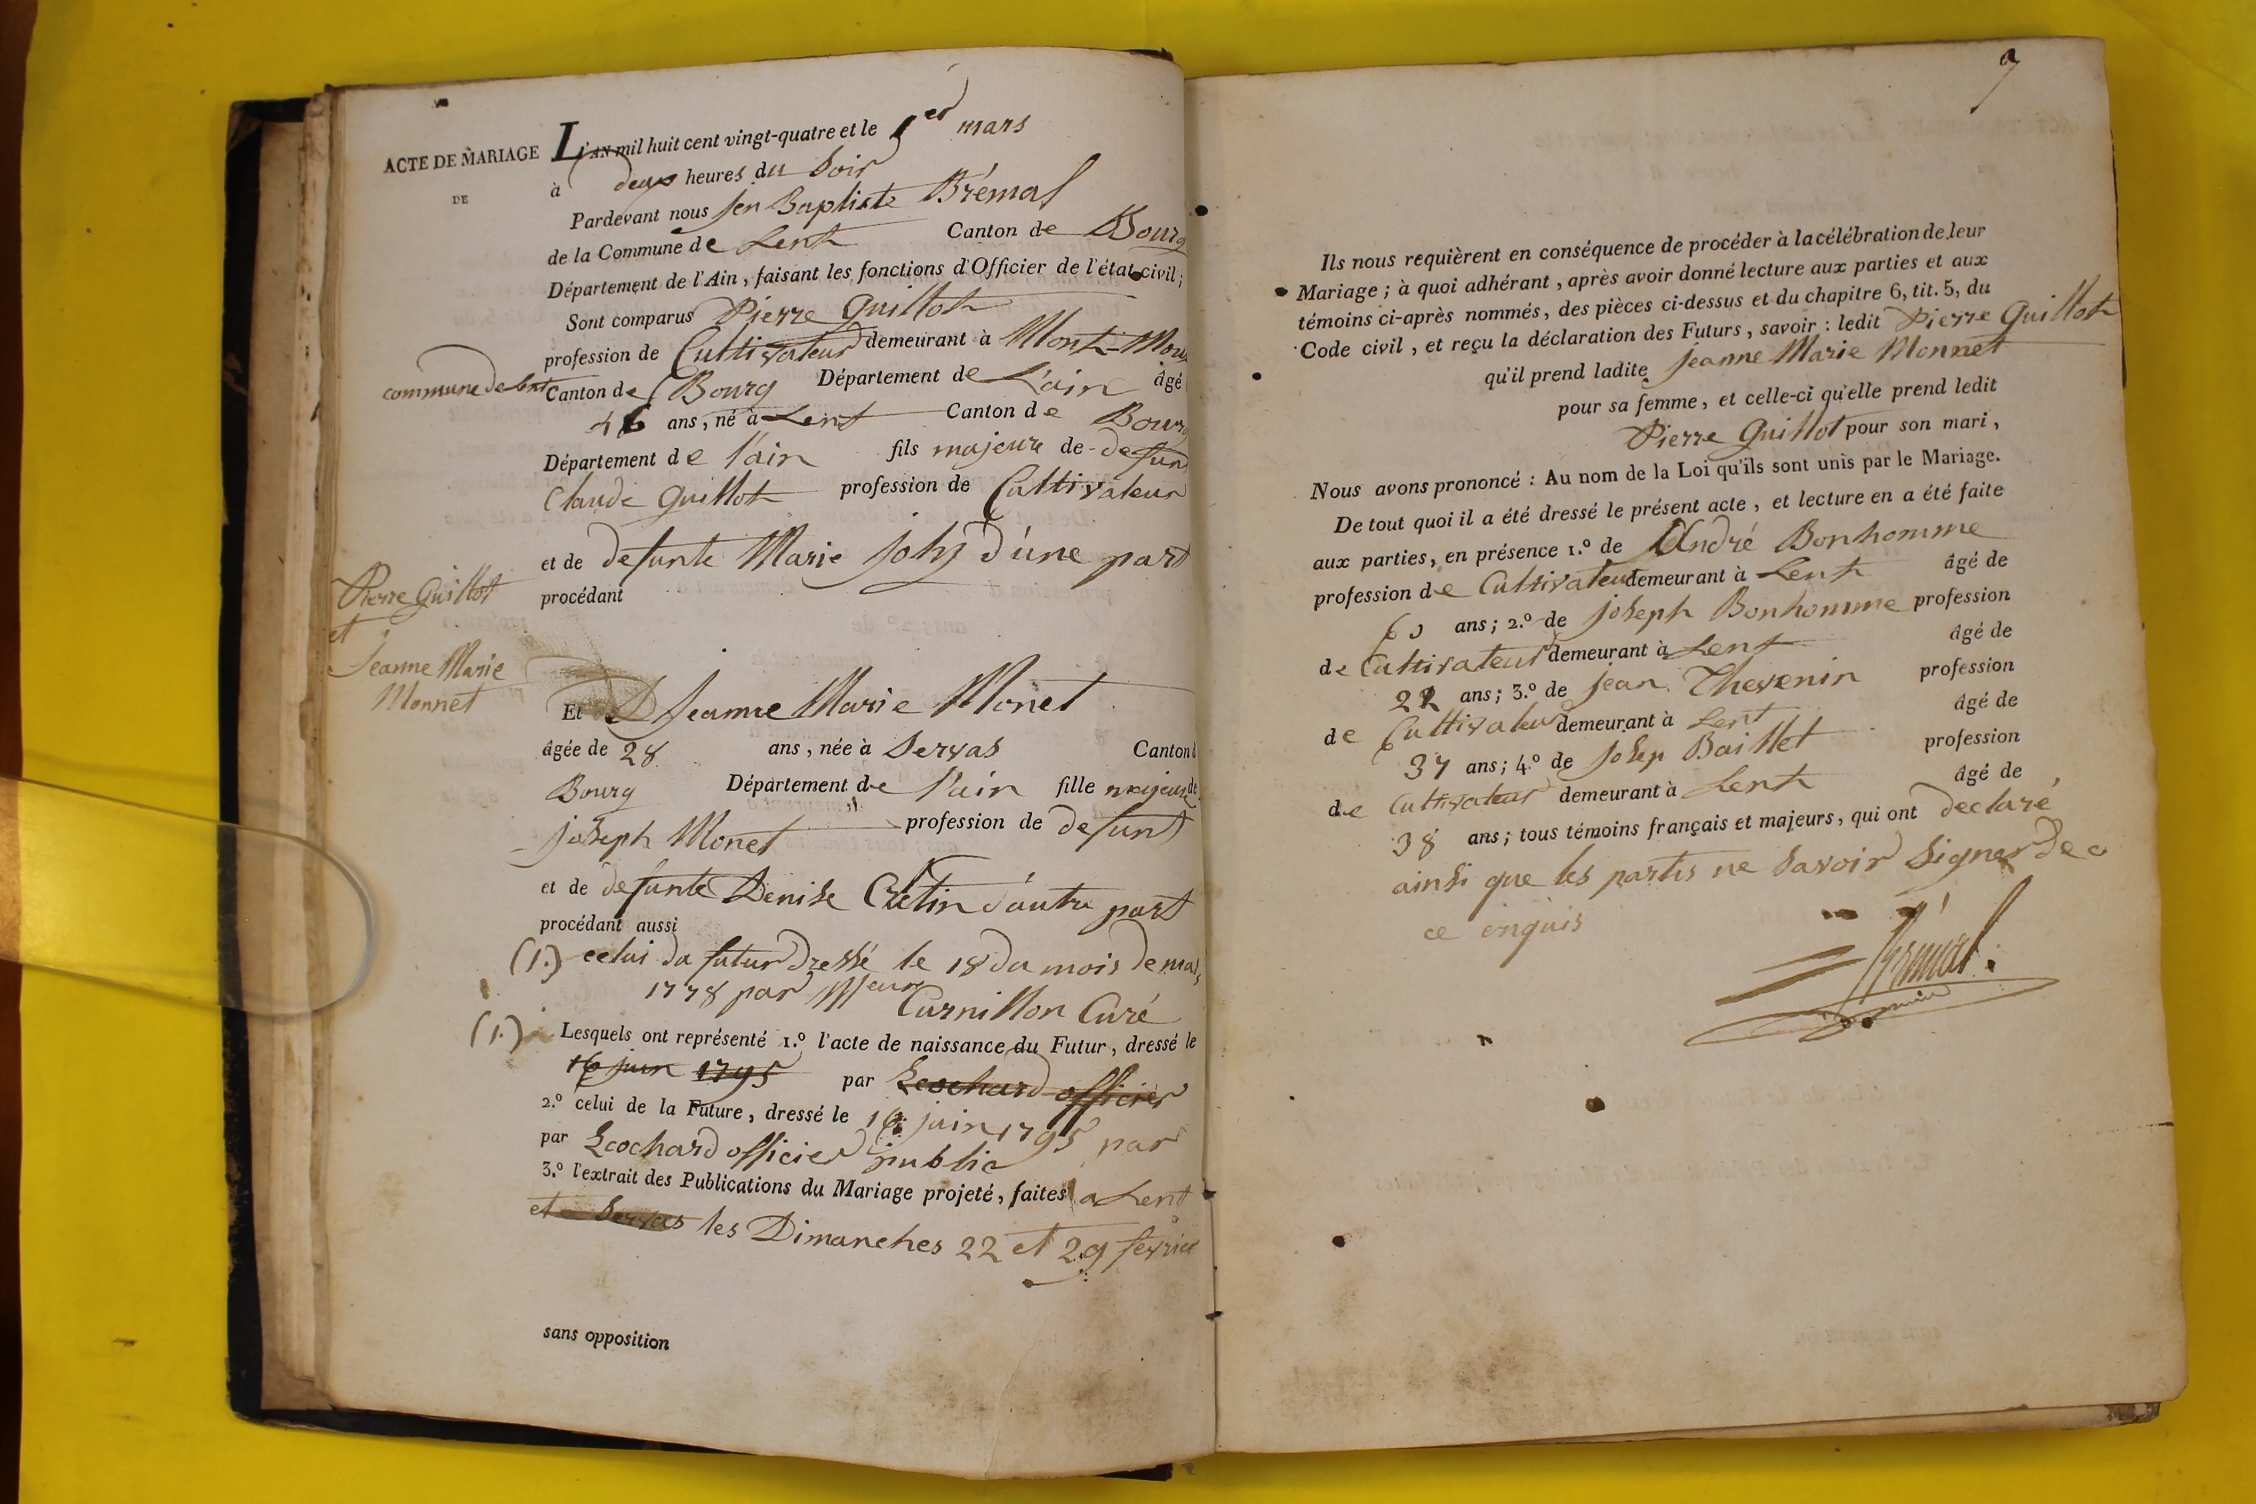 ACTE DE MARIAGE
DE
L'AN mil huit cent vingt-quatre et le 1er mars
à deux heures du Soir
Pardevant nous Jen Baptiste Brémal
de la Commune de Lent Canton de Bourg
Département de l'Ain, faisant les fonctions d'Officier de l'état civil;
Sont comparus Pierre Guillot
profession de Cultivateur demeurant à Mont-
commune de lent
Canton de Bourg Département de L'ain âgé
46 ans, né à Lent Canton de Bourg
Département de l'ain fils majeure de defunt
Claude Guillot profession de Cultivateur
et de defunte Marie Joly d'une part
procédant
Pierre Guillot
et
Jeanne Marie
Monnet
Et Jeanne Marie Monet
âgée de 28 ans, née à Servas Canton d
Bourg Département de l'ain fille majeure de
joseph Monet profession de defunt
et de defunte Denise Cretin d'autre part
procédant aussi
(1.) celui du futur dressé le 18 du mois de mars
1778 par Mr Curnillon Curé
(1.) Lesquels ont représenté 1.º l'acte de naissance du Futur, dressé le
16 juin 1795 par Leochard officier
2.º celui de la Future, dressé le 16 juin 1795 par
par Leochard officier public
3.º l'extrait des Publications du Mariage projeté, faites a Lent
et a Servas les Dimanches 22 et 29 fevrier
sans opposition
9
Ils nous requièrent en conséquence de procéder à la célébration de leur
Mariage; à quoi adhérant, après avoir donné lecture aux parties et aux
témoins ci-après nommés, des pièces ci-dessus et du chapitre 6, tit. 5, du
Code civil, et reçu la déclaration des Futurs, savoir : ledit Pierre Guillot
qu'il prend ladite Jeanne Marie Monnet
pour sa femme, et celle-ci qu'elle prend ledit
Pierre Guillot pour son mari,
Nous avons prononcé : Au nom de la Loi qu'ils sont unis par le Mariage.
De tout quoi il a été dressé le présent acte, et lecture en a été faite
aux parties, en présence 1.º de André Bonhomme
profession de Cultivateur demeurant à Lent âgé de
60 ans; 2.º de joseph Bonhomme profession
de Cultivateur demeurant à Lent âgé de
22 ans; 3.º de jean Thevenin profession
de Cultivateur demeurant à Lent âgé de
37 ans; 4.º de josep Baillet profession
de Cultivateur demeurant à Lent âgé de
38 ans; tous témoins français et majeurs, qui ont declaré
ainsi que les partis ne savoir signer de
ce enquis
Brémal